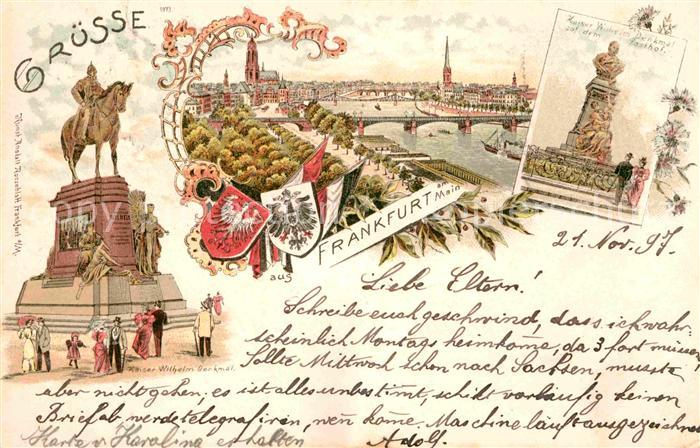 GRÜSSE
Kaiser Wilhelm Denkmal
auf dem
Posthof.
aus
FRANKFURT am Main
Kaiser Wilhelm Denkmal.
21. Nov. 97.
Liebe Eltern!
Schreibe euch geschwind, dass ich wahr-
scheinlich Montags heimkome, da 3 fort müssen
Sollte Mittwoch schon nach Sachsen, musste
aber nicht gehen; es ist alles unbestimt, schikt vorläufig keinen
Brief ab, werde telegrafiren, wen kome. Maschine läuft ausgezeichnet
Karte v. Karolina erhalten
Adolf.